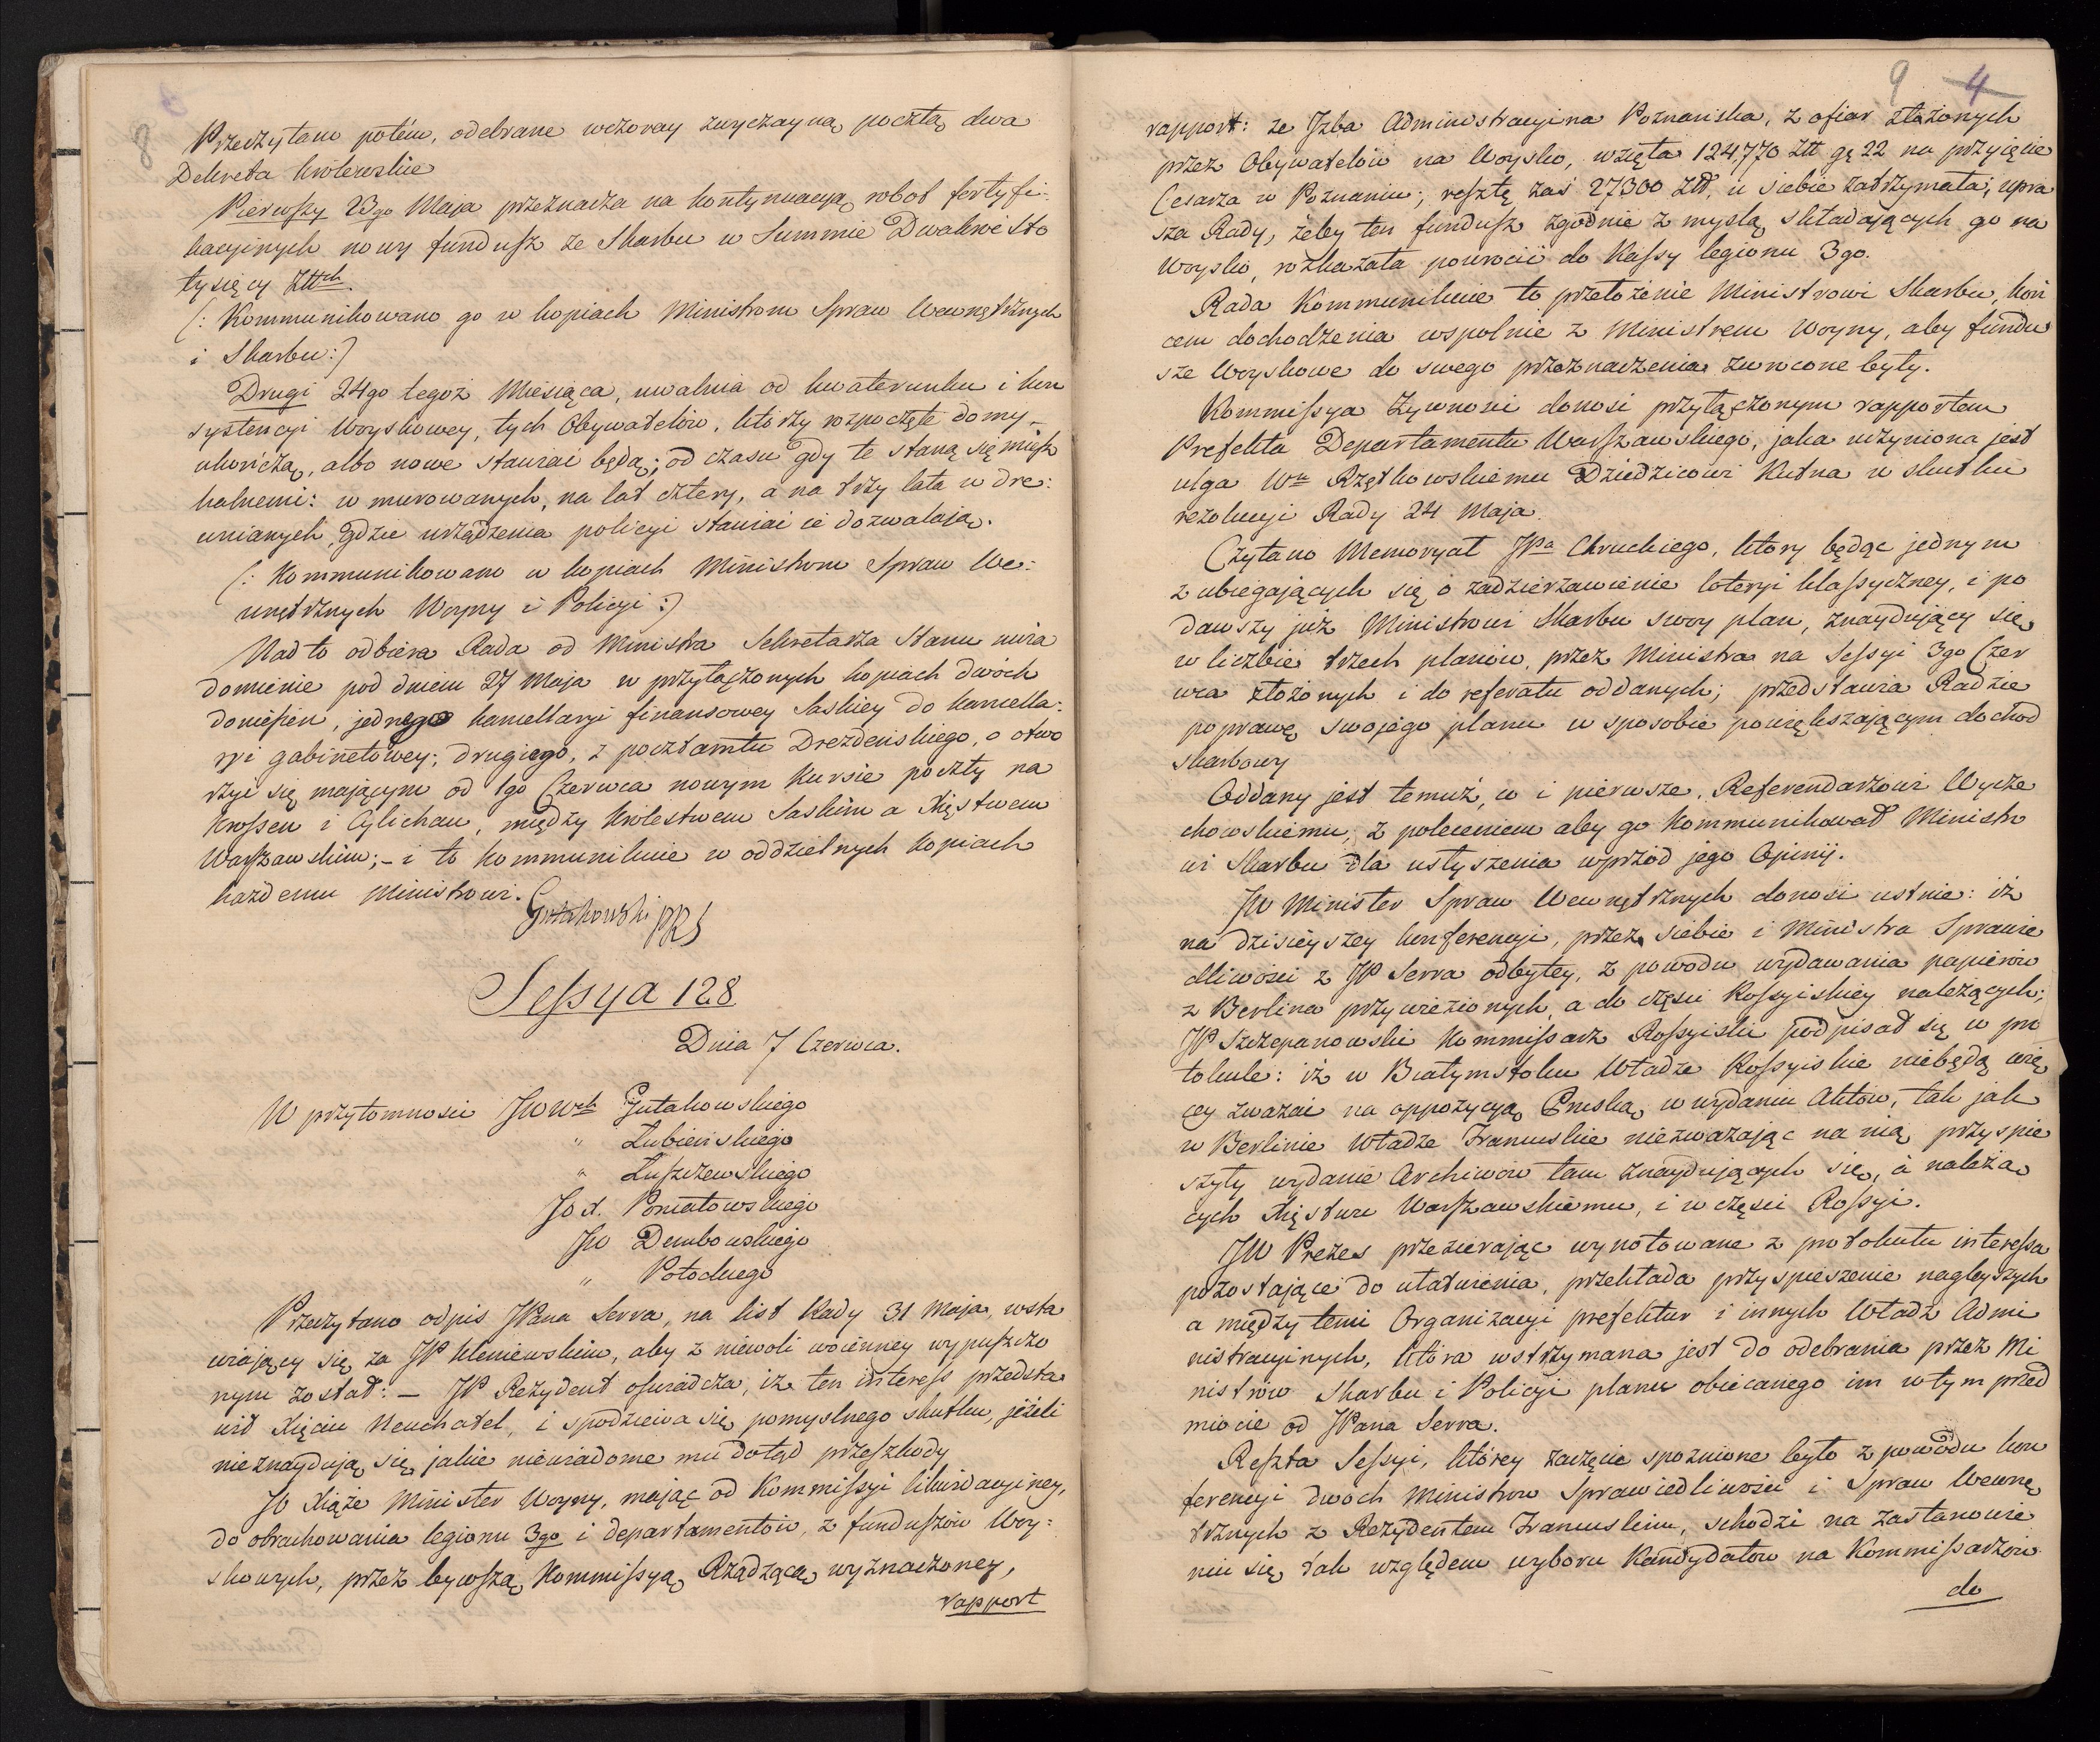 8
Przeczytano potém, odebrane wczoray zwyczayną pocztą dwa
Dekreta Krolewskie
Pierwszy 23go Maja przeznacza na kontynuacyą robot fortyfi:
kacyinych nowy fundusz ze Skarbu w Summie Dwakroć Sto
tysięcy Złłch.
(: Kommunikowano go w kopiach Ministrom Spraw Wewnętrznych
i Skarbu:)
Drugi 24go tegoż Miesiąca, uwalnia od kwaterunku i kon
systencyi Woyskowey, tych Obywatelów, którzy rozpoczęte domy
ukończą, albo nowe stawiać będą; od czasu gdy te staną się miesz
kalnemi: w murowanych, na lat cztery, a na trzy lata w dre:
wnianych, gdzie urządzenia policyi stawiać ie dozwalają.
(: Kommunikowano w kopiach Ministrom Spraw We:
wnętrznych Woyny i Policyi :)
Nadto odbiera Rada od Ministra Sekretarza Stanu uwia
domienie pod dniem 27 Maja w przyłączonych kopiach dwóch
doniesień, jednego kancellaryi finansowey Saskiey do kancella:
ryi gabinetowey; drugiego, z pocztamtu Drezdeńskiego, o otwo
rzyć się mającym od 1go Czerwca nowym kursie poczty na
Krossen i Cylichau, między Krolestwem Saskim a Xięstwem
Warszawskim; - i to kommunikuie w oddzielnych kopiach
każdemu Ministrowi.
Gutakowski PRS
Sessya 128
Dnia 7 Czerwca.
W przytomnosci JWWch Gutakowskiego
" Łubieńskiego
" Łuszczewskiego
JOX. Poniatowskiego
JW Dembowskiego
" Potockiego
Przeczytano odpis JPana Serra, na list Rady 31 Maja, wsta
wiający się za JP Kleniewskim, aby z niewoli woienney wypuszczo
nym został: - JP Rezydent oswiadcza, iż ten interess przedsta
wił Xięciu Neuchatel, i spodziewa się pomyslnego skutku, jeżeli
nieznaydują się jakie niewiadome mu dotąd przeszkody
JO Xiąże Minister Woyny, mając od Kommissyi likwidacyiney,
do obrachowania legionu 3go i departamentów, z funduszów Woy:
skowych, przez bywszą Kommissyą Rządzącą wyznaczoney,
rapport
9 4
rapport: że Izba Administracyina Poznańska, z ofiar złożonych
przez Obywatelów na Woysko, wzięła 124,770 Złł gę 22 na przyięcie
Cesarza w Poznaniu; resztę zaś 27300 Złł, u siebie zatrzymała; upra
sza Rady, żeby ten fundusz zgodnie z myslą składających go na
Woysko, rozkazała powrócić do Kassy legionu 3go.
Rada Kommunikuie to przełożenie Ministrowi Skarbu, koń
cem dochodzenia wspolnie z Ministrem Woyny, aby fundu
sze Woyskowe do swego przeznaczenia zwrócone były.
Kommissya Żywnosci donosi przyłączonym rapportem
Prefekta Departamentu Warszawskiego, jaka uczyniona jest
ulga Wu Rzętkowskiemu Dziedzicowi Kutna w skutku
rezolucyi Rady 24 Maja.
Czytano Memoryał JPa Chruckiego, który będąc jednym
z ubiegających się o zadzierzawienie loteryi klassyczney, i po
dawszy już Ministrowi Skarbu swoy plan, znaydujący się
w liczbie trzech planów, przez Ministra na Sessyi 3go Czer
wca złożonych i do referatu oddanych; przedstawia Radzie
poprawę swojego planu w sposobie powiększającym dochod
skarbowy
Oddany jest temuż, co i pierwsze, Referendarzowi Wycze
chowskiemu, z poleceniem aby go kommunikował Ministro
wi Skarbu dla usłyszenia wprzód jego Opinij.
JW Minister Spraw Wewnętrznych donosi ustnie: iż
na dzisieyszey konferencyi, przez siebie i Ministra Sprawie
dliwości z JP Serra odbytey, z powodu wydawania papierów
z Berlina przywiezionych, a do części Rossyiskiey należących;
JP Szczepanowski Kommissarz Rossyiski podpisał się w pro
tokule: iż w Białymstoku Władze Rossyiskie niebędą wię
cey zważać na oppozycyą Pruską w wydaniu Aktów, tak jak
w Berlinie Władze Francuskie niezważając na nią przyspie
szyły wydanie Archiwów tam znaydujących się, a należą
cych Xięstwu Warszawskiemu, i w części Rossyi.
JW Prezes przezierając wynotowane z protokułu interessa
pozostające do ułatwienia, przekłada przyspieszenie nagleyszych
a między temi Organizacyi prefektur i innych Władz Admi
nistracyinych, która wstrzymana jest do odebrania przez Mi
nistrów Skarbu i Policyi planu obiecanego im w tym przed
miocie od JPana Serra.
Reszta Sessyi, którey zaczęcie spoznione było z powodu kon
ferencyi dwóch Ministrow Sprawiedliwości i Spraw Wewnę
trznych z Rezydentem Francuskim, schodzi na zastanowie
niu się tak względem wyboru Kandydatów na Kommissarzów
do